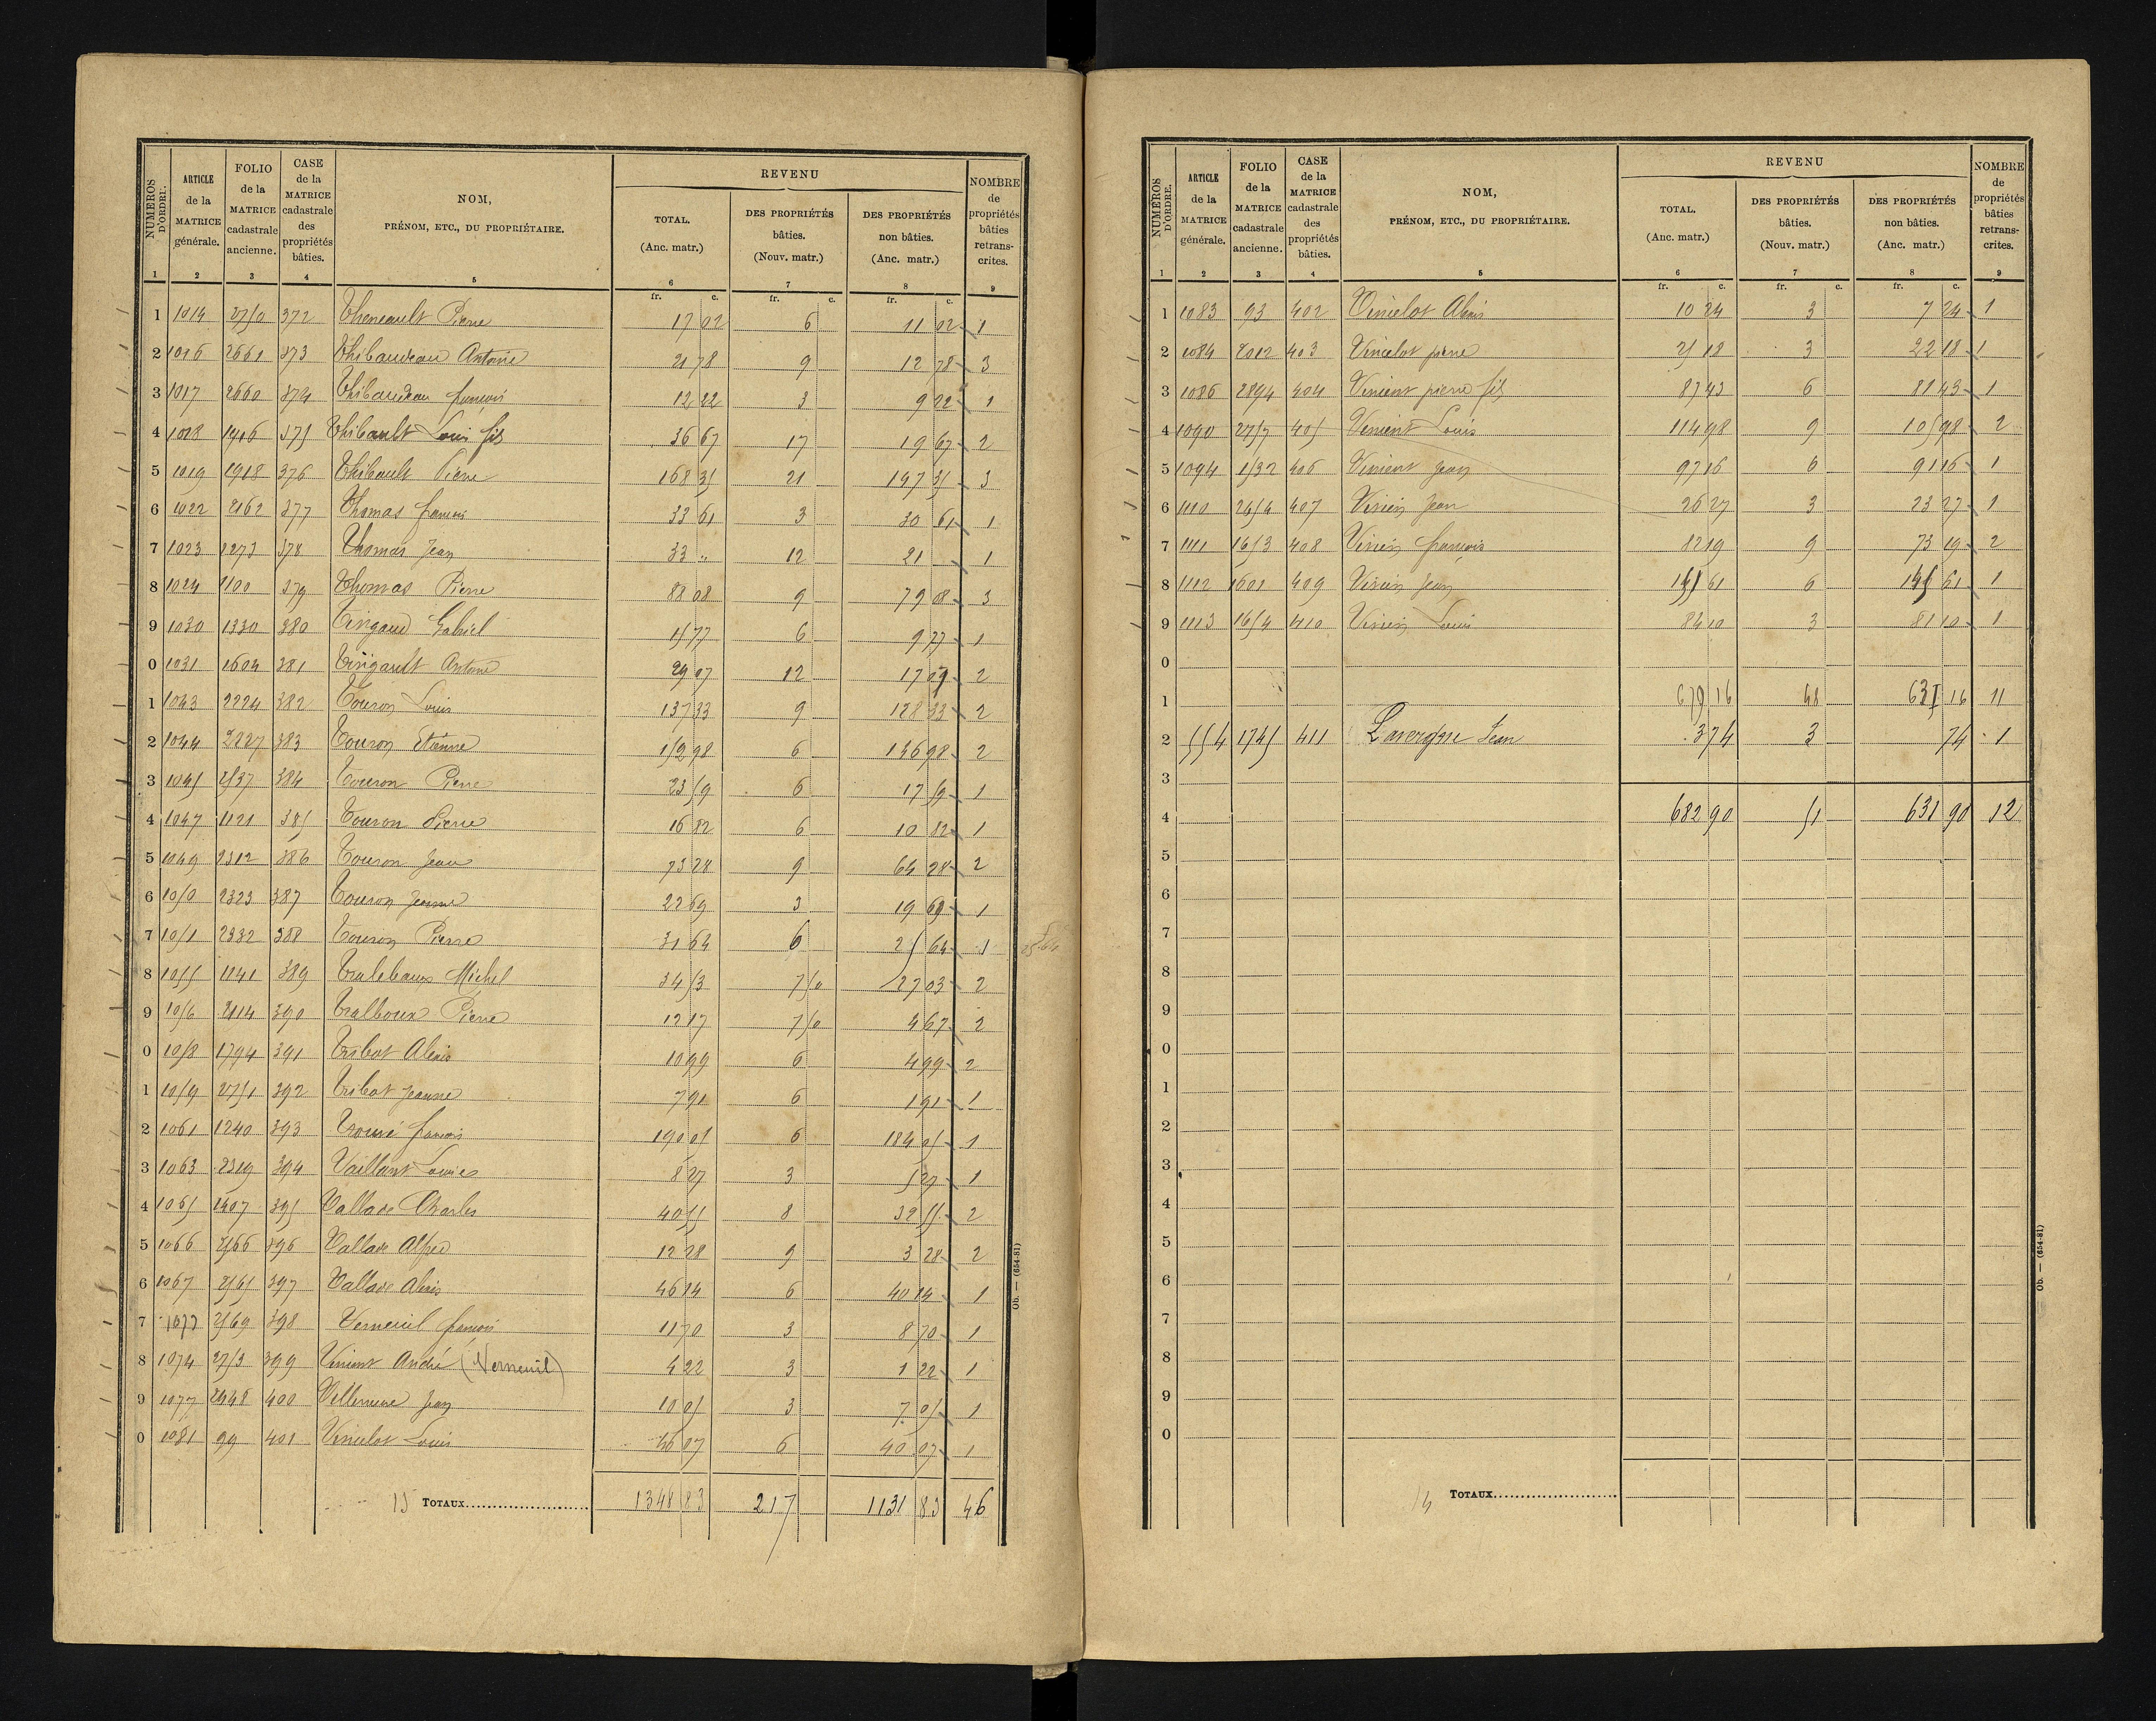 NUMÉROS D'ORDRE. ARTICLE de la MATRICE générale. FOLIO de la MATRICE cadastrale ancienne. CASE de la MATRICE cadastrale des propriétés bâties. NOM, PRÉNOM, ETC., DU PROPRIÉTAIRE. REVENU TOTAL. (Anc. matr.) DES PROPRIÉTÉS bâties. (Nouv. matr.) DES PROPRIÉTÉS non bâties. (Anc. matr.) NOMBRE de propriétés bâties retranscrites.
1 2 3 4 5 6 7 8 9
fr. c. fr. c. fr. c.
1 1014 2750 372 Theneault Pierre 17 02 6 11 02 1
2 1016 2661 373 Thibaudeau Antoine 21 78 9 12 78 3
3 1017 2660 374 Thibaudeau françois 12 22 3 9 22 1
4 1018 1916 375 Thibault Louis fils 36 67 17 19 67 2
5 1019 1918 376 Thibault Pierre 168 35 21 147 35 3
6 1022 2162 377 Thomas francois 33 61 3 30 61 1
7 1023 2273 378 Thomas Jean 33 " 12 21 1
8 1024 1100 379 Thomas Pierre 88 08 9 79 08 3
9 1030 1330 380 Tingaud Gabriel 15 77 6 9 77 1
0 1031 1604 381 Tirigault Antoine 29 07 12 17 07 2
1 1043 2224 382 Touron Louis 137 33 9 128 33 2
2 1044 2227 383 Touron Etienne 152 98 6 146 98 2
3 1045 2537 384 Touron Pierre 23 59 6 17 59 1
4 1047 1121 385 Touron Pierre 16 82 6 10 82 1
5 1049 2312 386 Touron Jean 73 28 9 64 28 2
6 1050 2323 387 Touron Jeanne 22 69 3 19 69 1
7 1051 2332 388 Touron Pierre 31 64 6 25 64 1
8 1055 1141 389 Tralebaux Michel 34 53 7 50 27 03 2
9 1056 2114 390 Tralboux Pierre 12 17 7 50 4 67 2
0 1058 1794 391 Tribot Alexis 10 99 6 4 99 2
1 1059 2751 392 Tribot Jeanne 7 91 6 1 91 1
2 1061 1240 393 Trouvé francois 190 05 6 184 05 1
3 1063 2319 394 Vaillant Louis 8 27 3 5 27 1
4 1065 1407 395 Vallade Charles 40 55 8 32 55 2
5 1066 2566 396 Vallade Alfred 12 28 9 3 28 2
6 1067 2565 397 Vallade Alexis 46 14 6 40 14 1
7 2569 398 Verneuil françois 11 70 3 8 70 1
8 1074 2753 399 Vinient André (Verneuil) 4 22 3 1 22 1
9 1077 2448 400 Villeneuve Jean 10 05 3 7 05 1
0 1081 99 401 Vincelot Louis 46 07 6 40 07 1
15 TOTAUX 1348 83 217 1131 83 46
Ob. — (654-81)
NUMÉROS D'ORDRE. ARTICLE de la MATRICE générale. FOLIO de la MATRICE cadastrale ancienne. CASE de la MATRICE cadastrale des propriétés bâties. NOM, PRÉNOM, ETC., DU PROPRIÉTAIRE. REVENU TOTAL. (Anc. matr.) DES PROPRIÉTÉS bâties. (Nouv. matr.) DES PROPRIÉTÉS non bâties. (Anc. matr.) NOMBRE de propriétés bâties retranscrites.
1 2 3 4 5 6 7 8 9
fr. c. fr. c. fr. c.
1 1083 93 402 Vincelot Alexis 10 24 3 7 24 1
2 1084 2012 403 Vincelot pierre 25 18 3 22 18 1
3 1086 2894 404 Venient pierre fils 87 43 6 81 43 1
4 1090 2757 405 Venient Louis 114 98 9 105 98 2
5 1094 1532 406 Vinient Jean 97 16 6 91 16 1
6 1110 2454 407 Virien Jean 26 27 3 23 27 1
7 1111 1653 408 Virien françois 82 19 9 73 19 2
8 1112 1601 409 Virien Jean 151 61 6 145 61 1
9 1113 1654 410 Virien Louis 84 10 3 81 10 1
0
1 679 16 48 631 16 11
2 554 1745 411 Lavergne Jean 3 74 3 74 1
3
4 682 90 51 631 90 12
5
6
7
8
9
0
1
2
3
4
5
6
7
8
9
0
TOTAUX
Ob. — (654-81)